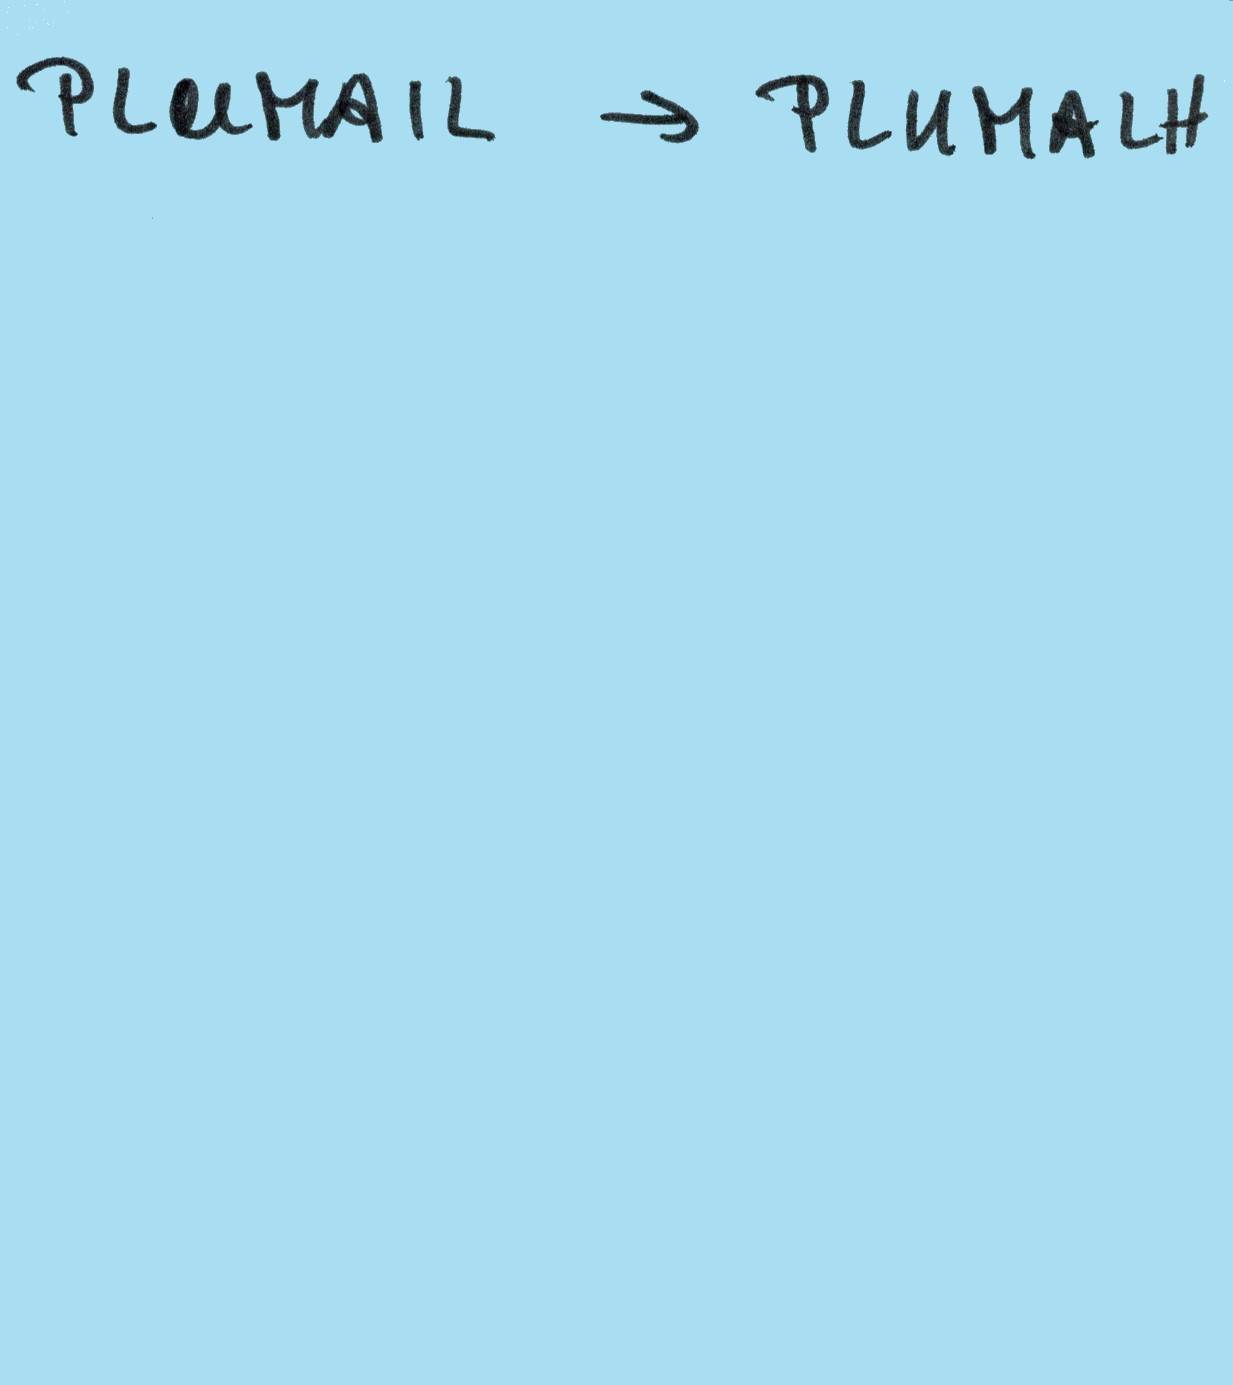 PLUMAIL → PLUMALH